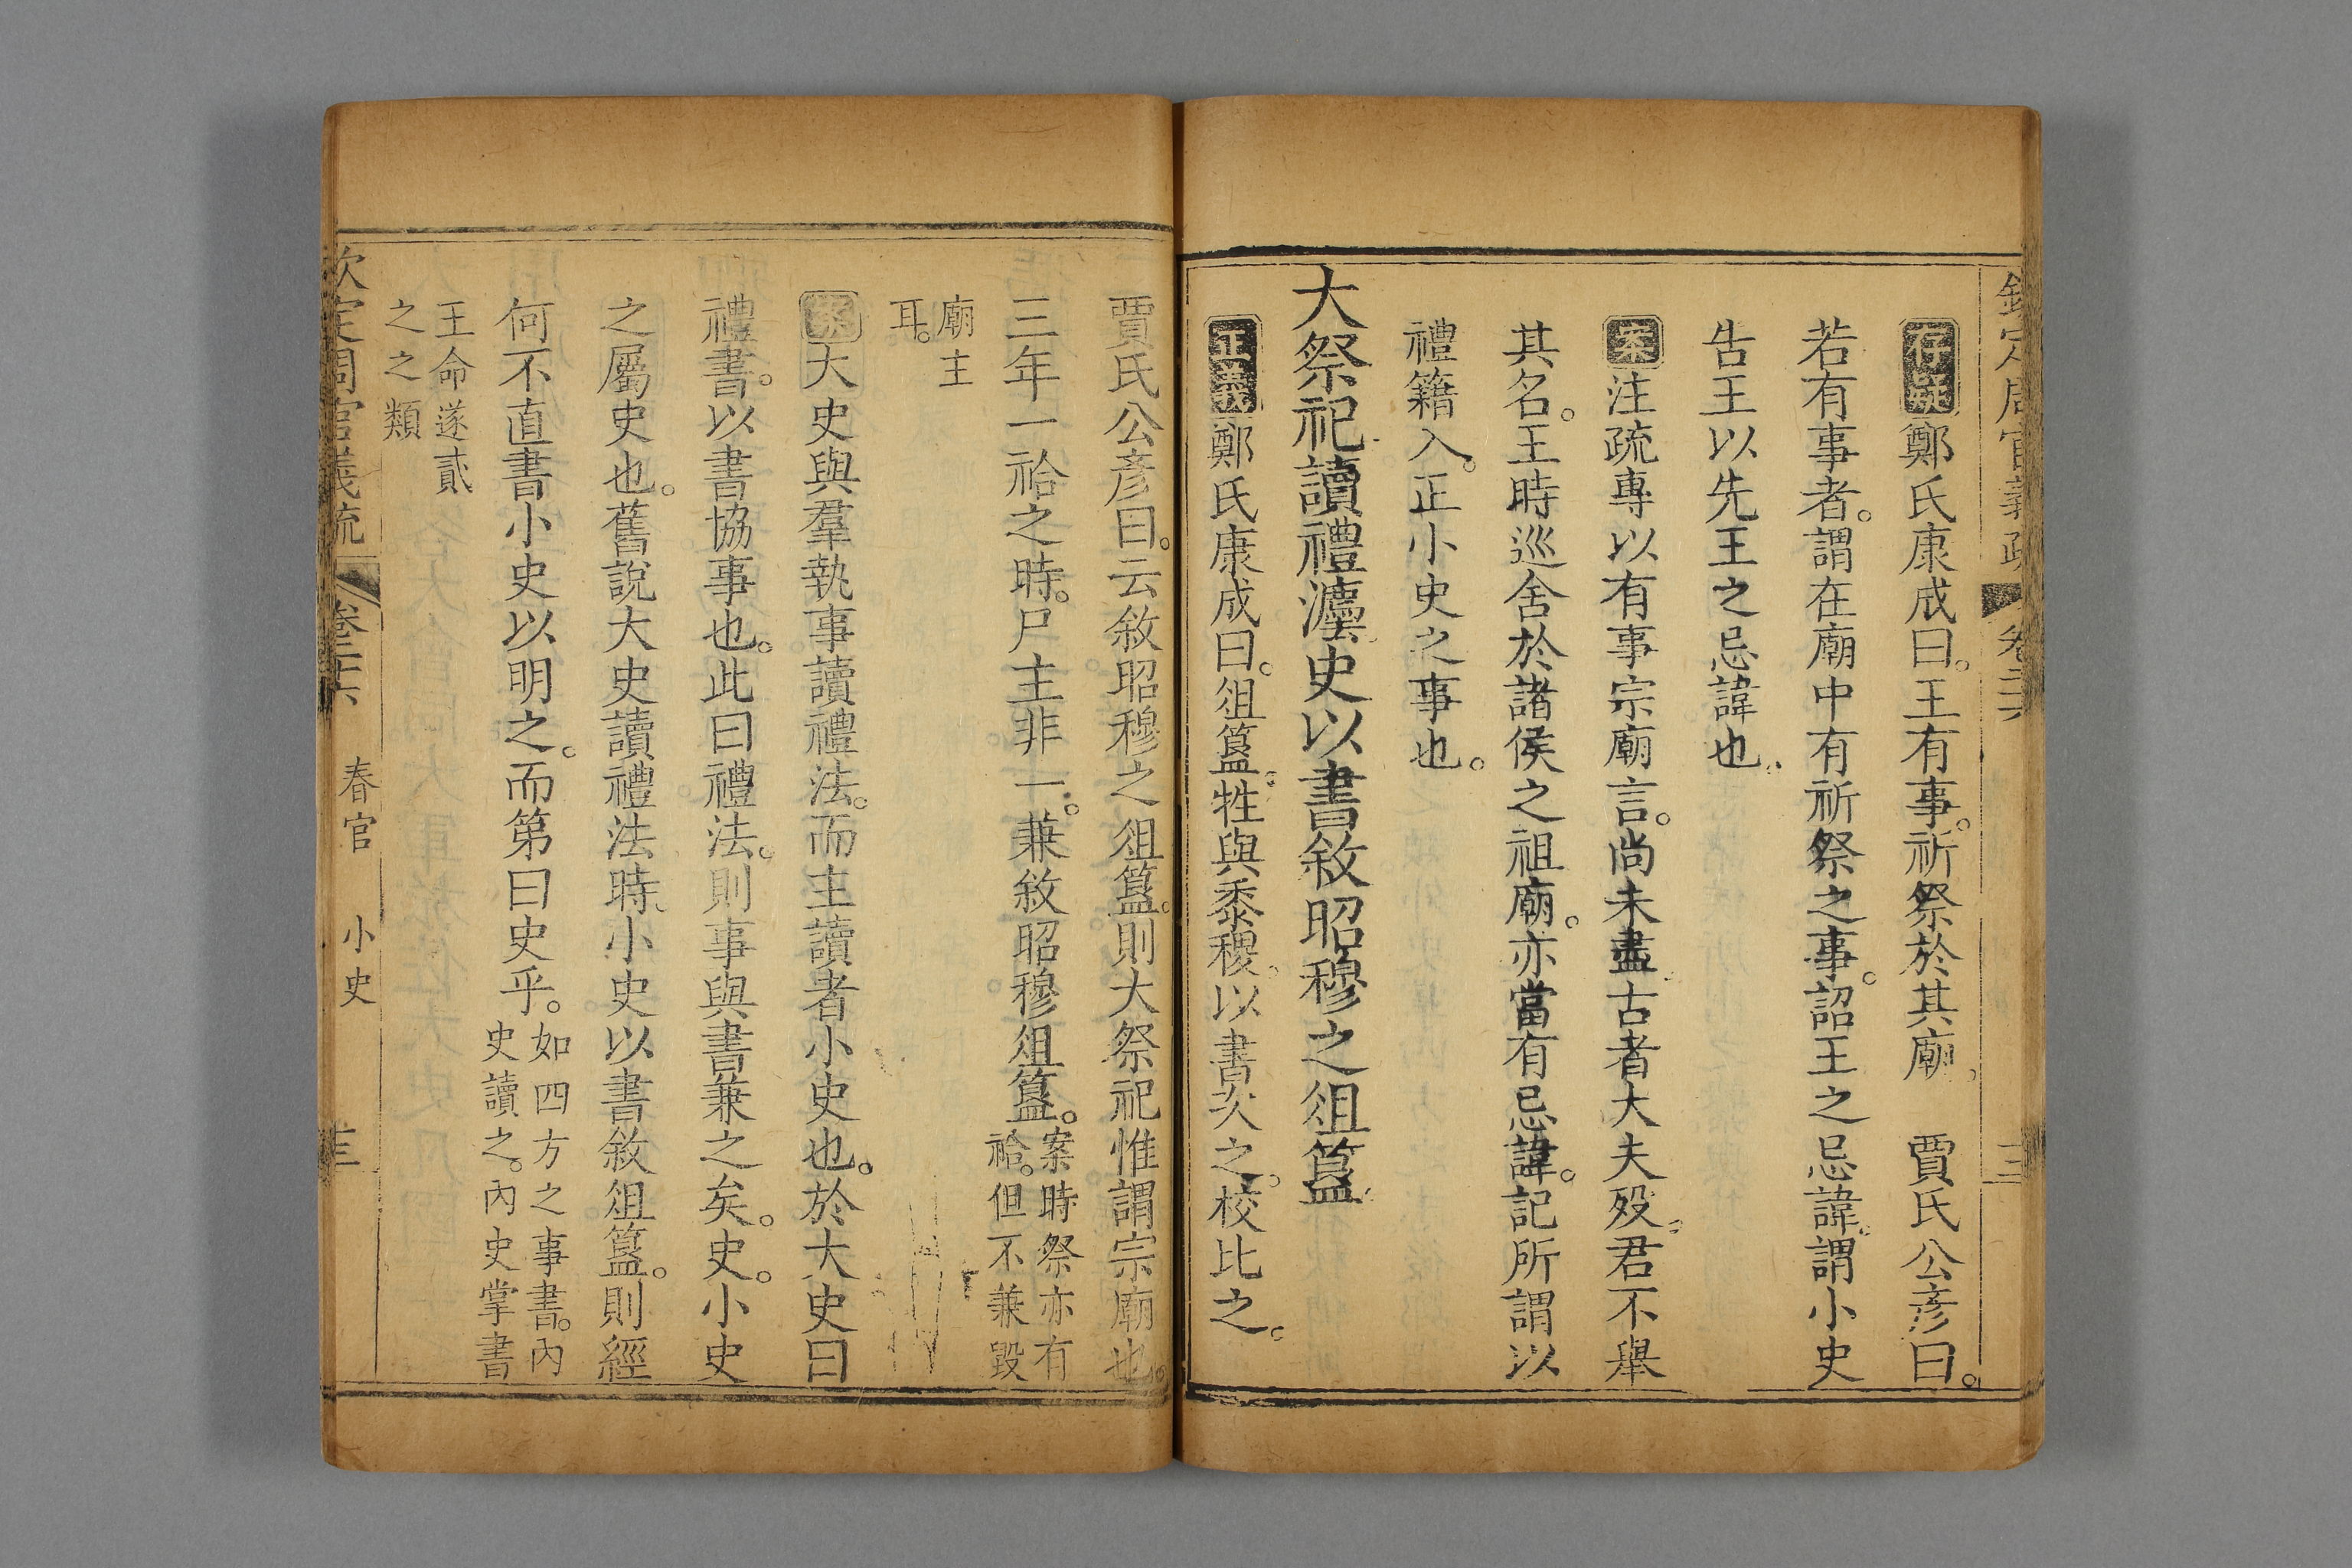 欽定周官義疏 卷二十六 三
存疑鄭氏康成曰。王有事。祈祭於其廟。 賈氏公彥曰。
若有事者。謂在廟中有祈祭之事。詔王之忌諱。謂小史
告王以先王之忌諱也。
案注疏專以有事宗廟言。尚未盡。古者大夫歿。君不舉
其名。王時巡舍於諸侯之祖廟。亦當有忌諱。記所謂以
禮籍入。正小史之事也。
大祭祀讀禮灋。史以書敘昭穆之俎簋。
正義鄭氏康成曰。俎簋。牲與黍稷。以書次之。校比之。
賈氏公彥曰。云敘昭穆之俎簋。則大祭祀惟謂宗廟也。
三年一祫之時。尸主非一。兼敘昭穆俎簋。案時祭亦有
祫。但不兼毀
廟主
耳。
案大史與羣執事讀禮法。而主讀者小史也。於大史曰
禮書。以書協事也。此曰禮法。則事與書兼之矣。史。小史
之屬史也。舊說大史讀禮法時。小史以書敘俎簋。則經
何不直書小史以明之。而第曰史乎。如四方之事書。內
史讀之。內史掌書
王命遂貳
之之類
欽定周官義疏 卷二十六 春官 小史 三